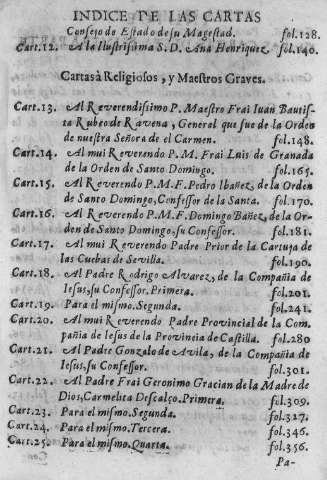 INDICE DE LAS CARTAS
Consejo de Estado de su Magestad. fol.128.
Cart.12. A la Ilustrissima S. D. Ana Henriquez. fol.140.
Cartas à Religiosos, y Maestros Graves.
Cart.13. Al Reverendissimo P. Maestro Frai Iuan Bautis-
ta Rubeo de Ravena, General que fue de la Orden
de nuestra Señora el Carmen. fol.148.
Cart.14. Al mui Reverendo P. M. Frai Luis de Granada
de la Orden de Santo Domingo. fol.165.
Cart.15. Al Reverendo P.M.F. Pedro Ibañez, de la Orden
de Santo Domingo, Confessor de la Santa. fol.170.
Cart.16. Al Reverendo P.M.F. Domingo Bañez, de la Or-
den de Santo Domingo, su Confessor. fol.181.
Cart.17. Al mui Reverendo Padre Prior de la Cartuja de
las Cuebas de Sevilla. fol.190.
Cart.18. Al Padre Rodrigo Alvarez, de la Compañia de
Iesus, su Confessor. Primera. fol.201.
Cart.19. Para el mismo. Segunda. fol.241.
Cart.20. Al mui Reverendo Padre Provincial de la Com-
pañia de Iesus de la Provincia de Castilla. fol.280
Cart.21. Al Padre Gonzalo de Avila, de la Compañia de
Iesus, su Confessor. fol.301.
Cart.22. Al Padre Frai Geronimo Gracian de la Madre de
Dios, Carmelita Descalço. Primera. fol.309.
Cart.23. Para el mismo. Segunda. fol.327.
Cart.24. Para el mismo. Tercera. fol.346.
Cart.25. Para el mismo. Quarta. fol.356.
Pa-